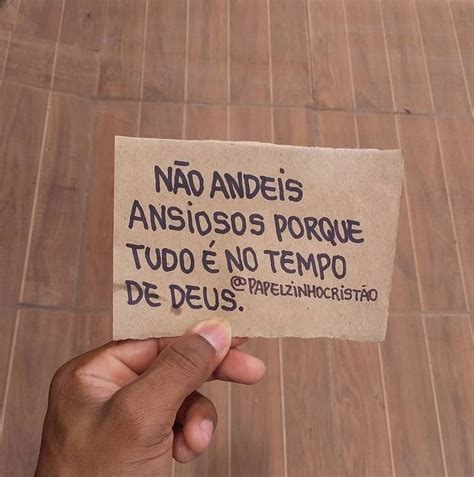 NÃO ANDEIS
ANSIOSOS PORQUE
TUDO É NO TEMPO
DE DEUS. @PAPELZINHOCRISTÃO